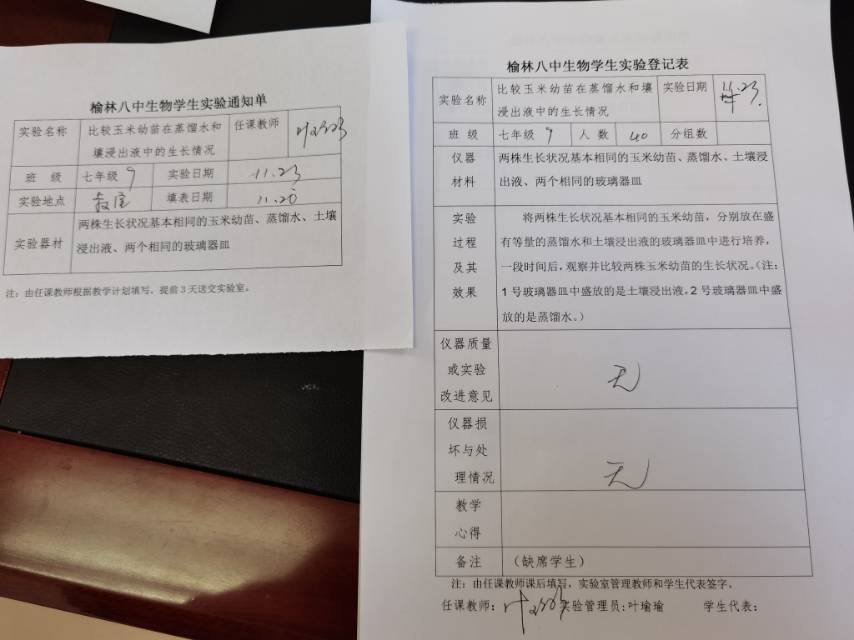 榆林八中生物学生实验通知单
实验名称 比较玉米幼苗在蒸馏水和 任课教师
壤浸出液中的生长情况
班 级 七年级 9 实验日期 11.23
实验地点 填表日期 11.20
实验器材 两株生长状况基本相同的玉米幼苗、蒸馏水、土壤
浸出液、两个相同的玻璃器皿
注:由任课教师根据教学计划填写,提前3天送交实验室。
榆林八中生物学生实验登记表
实验名称 比较玉米幼苗在蒸馏水和壤 实验日期
浸出液中的生长情况
班 级 七年级 9 人 数 40 分组数
仪器 两株生长状况基本相同的玉米幼苗、蒸馏水、土壤浸
材料 出液、两个相同的玻璃器皿
实验 将两株生长状况基本相同的玉米幼苗,分别放在盛
过程 有等量的蒸馏水和土壤浸出液的玻璃器皿中进行培养,
及其 一段时间后,观察并比较两株玉米幼苗的生长状况。(注:
效果 1号玻璃器皿中盛放的是土壤浸出液,2号玻璃器皿中盛
放的是蒸馏水。)
仪器质量
或实验 无
改进意见
仪器损
坏与处
理情况 无
教学
心得
备注 (缺席学生)
注:由任课教师课后填写,实验室管理教师和学生代表签字。
任课教师: 实验管理员:叶瑜瑜 学生代表: